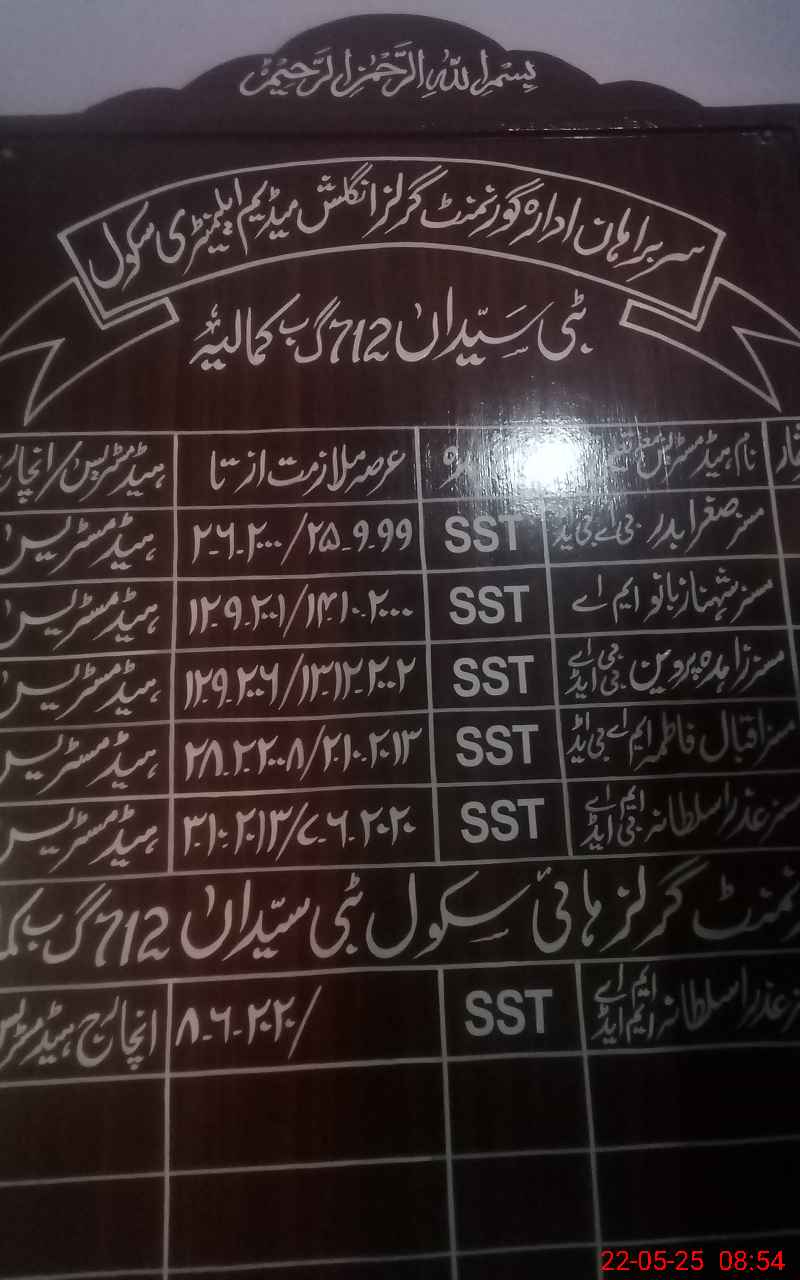 بِسْمِ اللهِ الرَّحْمٰنِ الرَّحِيْمِ
سربراہان ادارہ گورنمنٹ گرلز انگلش میڈیم ایلیمنٹری سکول
بُٹی سَیّداں 712 گ ب کمالیہ
نام ہیڈمسٹریس عرصہ ملازمت از تا ہیڈمسٹریس/انچارج
مسز صغرا بدر بی اے بی ایڈ SST ۲۵_۹_۹۹/۲_۶_۲۰۰۰ ہیڈمسٹریس
مسز شہناز بانو ایم اے SST ۱۴_۱۰_۲۰۰۰/۱۲_۹_۲۰۰۱ ہیڈمسٹریس
مسز زاہدہ پروین بی اے بی ایڈ SST ۱۳_۱۲_۲۰۰۲/۱۲_۹_۲۰۰۶ ہیڈمسٹریس
مسز اقبال فاطمہ ایم اے بی ایڈ SST ۲_۱۰_۲۰۱۳/۲۸_۲_۲۰۰۸ ہیڈمسٹریس
مسز عذرا سلطانہ ایم اے بی ایڈ SST ۷_۶_۲۰۲۰/۳_۱۰_۲۰۱۳ ہیڈمسٹریس
نمنٹ گرلز ہائی سکول بُٹی سیّداں 712 گ ب
عذرا سلطانہ ایم اے ایم ایڈ SST ۸_۶_۲۰۲۰/ انچارج ہیڈمسٹریس
22-05-25 08:54